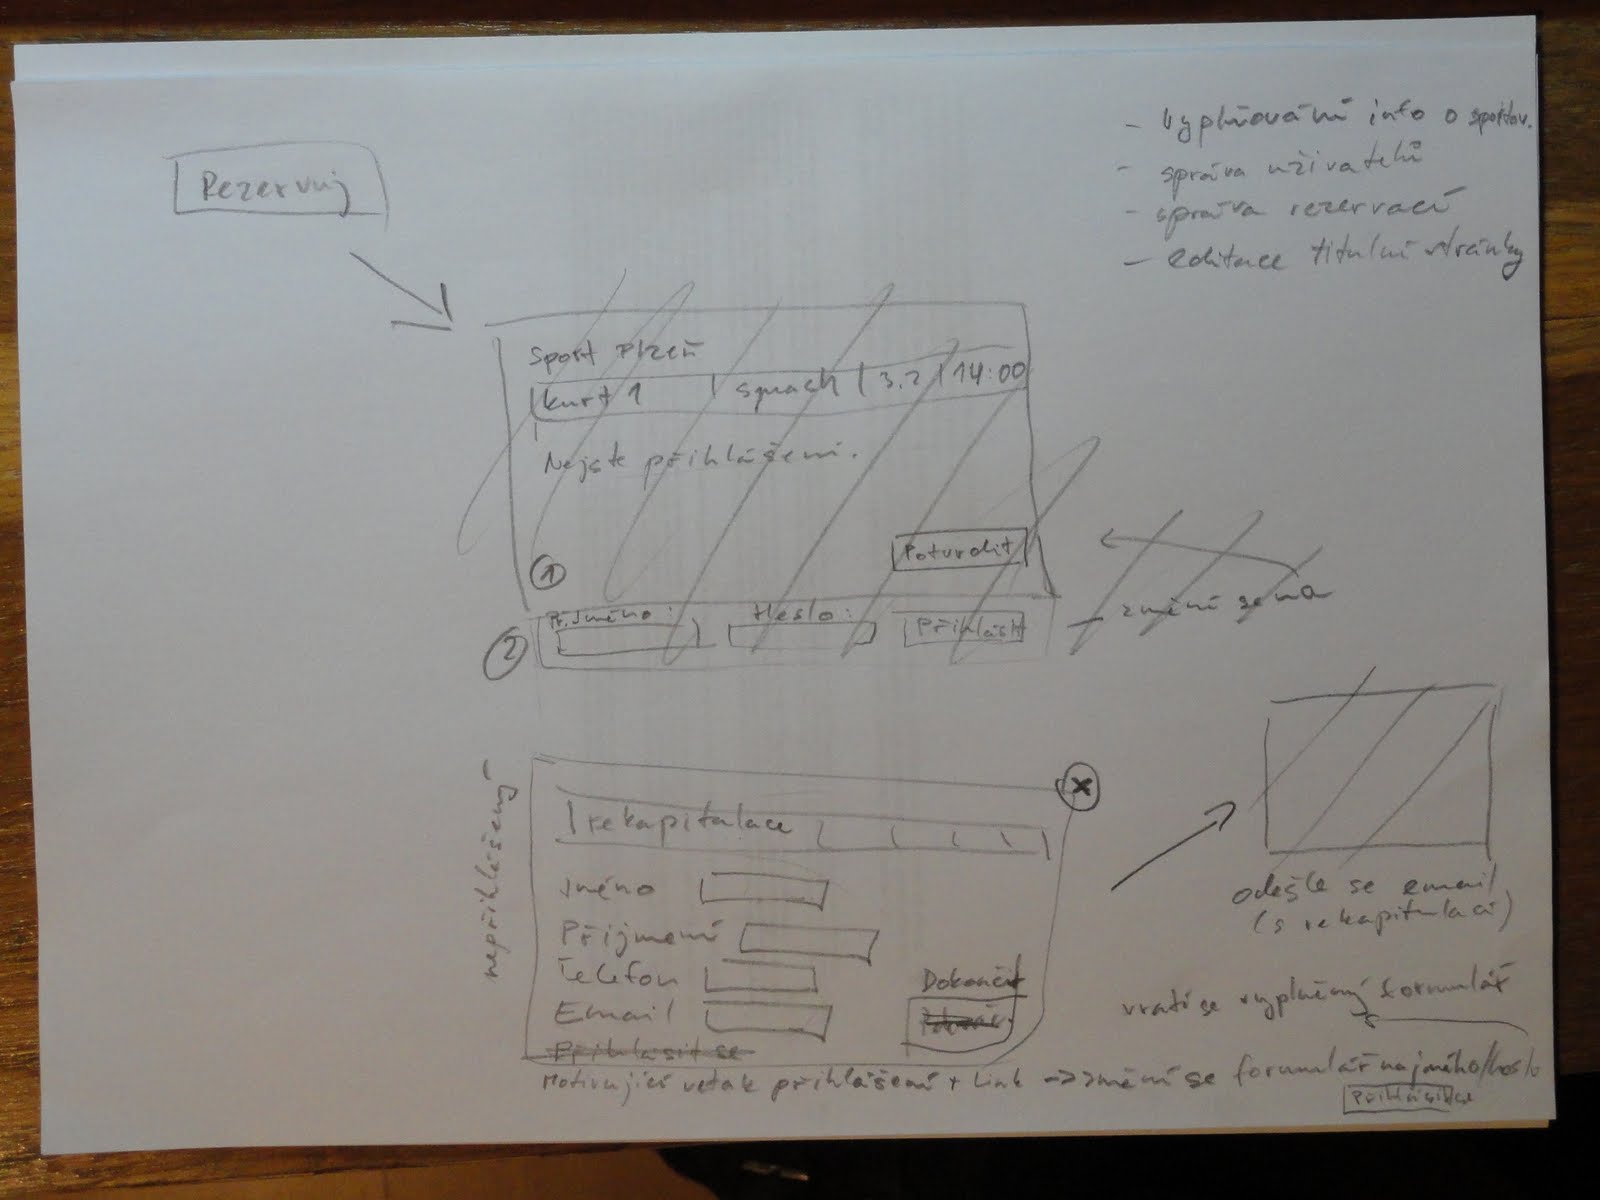 Rezervuj
- vyplňování info o sportov.
- správa uživatelů
- správa rezervací
- editace titulní stránky
Sport Plzeň
kurt 1 | squash | 3.2 | 14:00
Nejste přihlášeni.
Potvrdit
1
2
Př. Jméno: Heslo: Přihlásit
změní se na
nepřihlášený
x
rekapitulace
Jméno
Příjmení
Telefon
Email
Dokončit
Přihlásit se
odešle se email
(s rekapitulací)
vrátí se vyplněný formulář
Motivující vztak přihlášení + Link -> změní se formulář na jméno/heslo
Přihlásit se